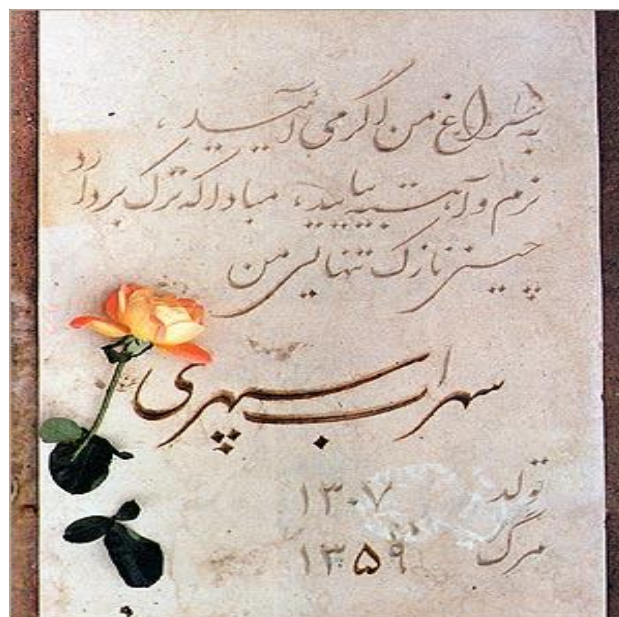 به سراغ من اگر می آئید ،
نرم و آهسته بیایید ، مبادا که ترک بردارد
چینی نازک تنهایی من
سهراب سپهری
تولد ۱۳۰۷
مرگ ۱۳۵۹